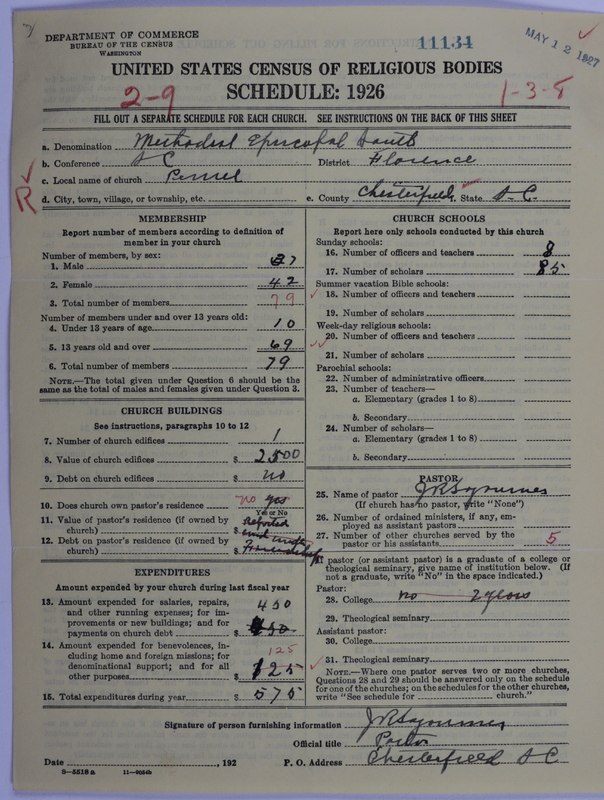 DEPARTMENT OF COMMERCE
BUREAU OF THE CENSUS
WASHINGTON
11134
MAY 12 1927
UNITED STATES CENSUS OF RELIGIOUS BODIES
SCHEDULE: 1926
2-9
1-3-8
FILL OUT A SEPARATE SCHEDULE FOR EACH CHURCH. SEE INSTRUCTIONS ON THE BACK OF THIS SHEET
a. Denomination Methodist Episcopal South
b. Conference S C District Florence
c. Local name of church
R
d. City, town, village, or township, etc. e. County Chesterfield f. State S. C.
MEMBERSHIP
Report number of members according to definition of member in your church
Number of members, by sex:
1. Male 37
2. Female 42
3. Total number of members 79
Number of members under and over 13 years old:
4. Under 13 years of age 10
5. 13 years old and over 69
6. Total number of members 79
NOTE.—The total given under Question 6 should be the same as the total of males and females given under Question 3.
CHURCH BUILDINGS
See instructions, paragraphs 10 to 12
7. Number of church edifices 1
8. Value of church edifices $ 2500
9. Debt on church edifices $ no
10. Does church own pastor's residence no yes
Yes or No
11. Value of pastor's residence (if owned by church) $ Reported
12. Debt on pastor's residence (if owned by church) $
EXPENDITURES
Amount expended by your church during last fiscal year
13. Amount expended for salaries, repairs, and other running expenses; for improvements or new buildings; and for payments on church debt $ 450
14. Amount expended for benevolences, including home and foreign missions; for denominational support; and for all other purposes $ 125 125
15. Total expenditures during year $ 575
CHURCH SCHOOLS
Report here only schools conducted by this church
Sunday schools:
16. Number of officers and teachers 8
17. Number of scholars 85
Summer vacation Bible schools:
18. Number of officers and teachers
19. Number of scholars
Week-day religious schools:
20. Number of officers and teachers
21. Number of scholars
Parochial schools:
22. Number of administrative officers
23. Number of teachers—
a. Elementary (grades 1 to 8)
b. Secondary
24. Number of scholars—
a. Elementary (grades 1 to 8)
b. Secondary
PASTOR
25. Name of pastor
(If church has no pastor, write "None")
26. Number of ordained ministers, if any, employed as assistant pastors
27. Number of other churches served by the pastor or his assistants 5
If pastor (or assistant pastor) is a graduate of a college or theological seminary, give name of institution below. (If not a graduate, write "No" in the space indicated.)
Pastor:
28. College no 2 years
29. Theological seminary
Assistant pastor:
30. College
31. Theological seminary
NOTE.—Where one pastor serves two or more churches, Questions 28 and 29 should be answered only on the schedule for one of the churches; on the schedules for the other churches, write "See schedule for church."
Signature of person furnishing information
Official title Pastor
Date , 192 P. O. Address Chesterfield S C
8—5518a 11—9054b